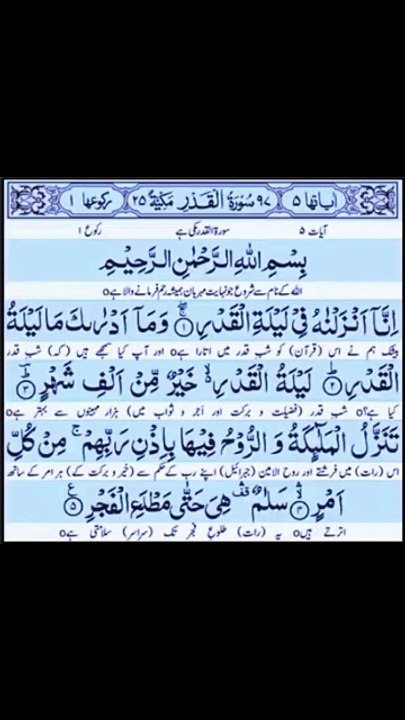 اٰیاتها ٥ ٩٧ سُوْرَةُ الْقَدْرِ مَکِّیَّةٌ ٢٥ رکوعها ١
آیات ٥ سورۃ القدر مکی ہے رکوع ١
بِسْمِ اللّٰهِ الرَّحْمٰنِ الرَّحِیْمِ
اللہ کے نام سے شروع جو نہایت مہربان ہمیشہ رحم فرمانے والا ہے ٥
اِنَّاۤ اَنْزَلْنٰهُ فِیْ لَیْلَةِ الْقَدْرِ ۝١ وَمَاۤ اَدْرٰىكَ مَا لَیْلَةُ
بیشک ہم نے اس (قرآن) کو شبِ قدر میں اتارا ہے ٥ اور آپ کیا سمجھے ہیں (کہ) شبِ قدر
الْقَدْرِ ۝٢ لَیْلَةُ الْقَدْرِ ۙ خَیْرٌ مِّنْ اَلْفِ شَهْرٍ ۝٣
کیا ہے؟ ٥ شبِ قدر (فضیلت و برکت اور اَجر و ثواب میں) ہزار مہینوں سے بہتر ہے ٥
تَنَزَّلُ الْمَلٰٓىِٕكَةُ وَ الرُّوْحُ فِیْهَا بِاِذْنِ رَبِّهِمْ ۚ مِنْ كُلِّ
اس (رات) میں فرشتے اور روح الامین (جبرائیل) اپنے رب کے حکم سے (خیر و برکت کے) ہر امر کے ساتھ
اَمْرٍ ۝٤ سَلٰمٌ ۛ هِیَ حَتّٰى مَطْلَعِ الْفَجْرِ ۝٥
اترتے ہیں ٥ یہ (رات) طلوعِ فجر تک (سراسر) سلامتی ہے ٥